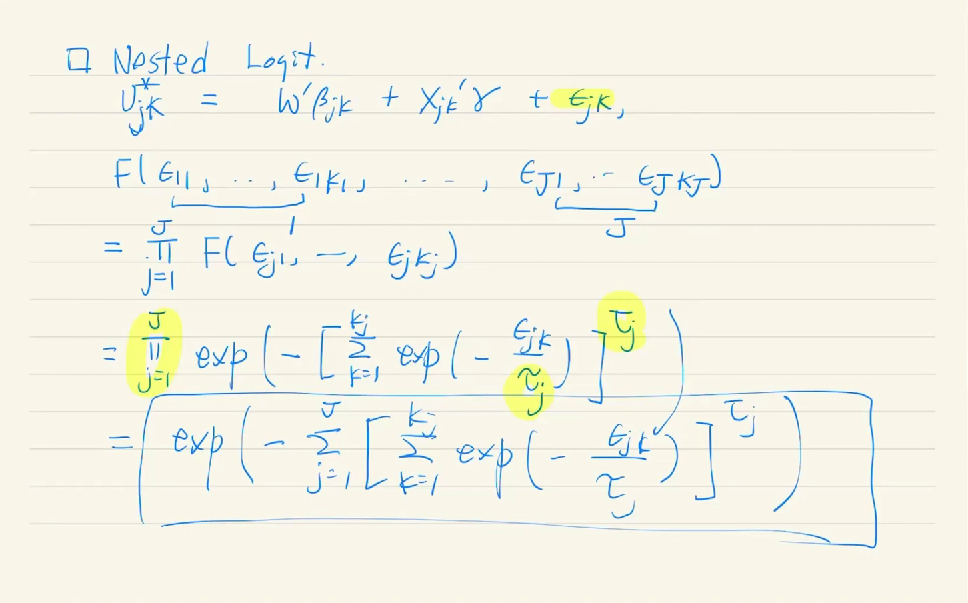 □ Nested Logit.
U*jk = W'βjk + Xjk'γ + εjk,
F(ε11, .., ε1K1, ...., εJ1, .. εJKJ)
1 J
= ∏_{j=1}^{J} F(εj1, —, εjKj)
= ∏_{j=1}^{J} exp(-[∑_{k=1}^{Kj} exp(-εjk/τj)]^{τj})
= exp(-∑_{j=1}^{J} [∑_{k=1}^{Kj} exp(-εjk/τj)]^{τj})